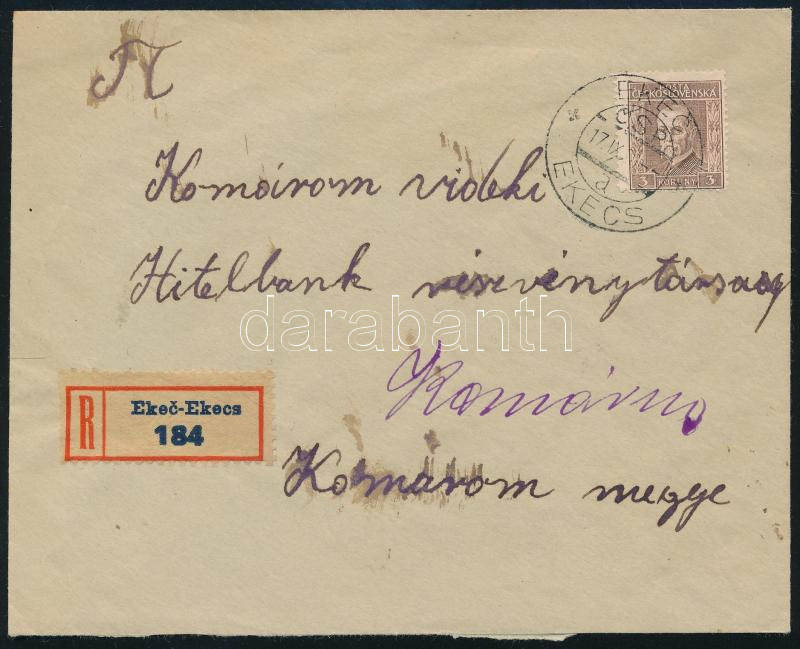 POSTA
ČESKOSLOVENSKÁ
3 KORUNY 3
EKEČ
ČSR
17.IX
a
EKECS
Komárom vidéki
Hitelbank részvénytársaság
darabanth
Komárno
R Ekeč-Ekecs
184
Komárom megye